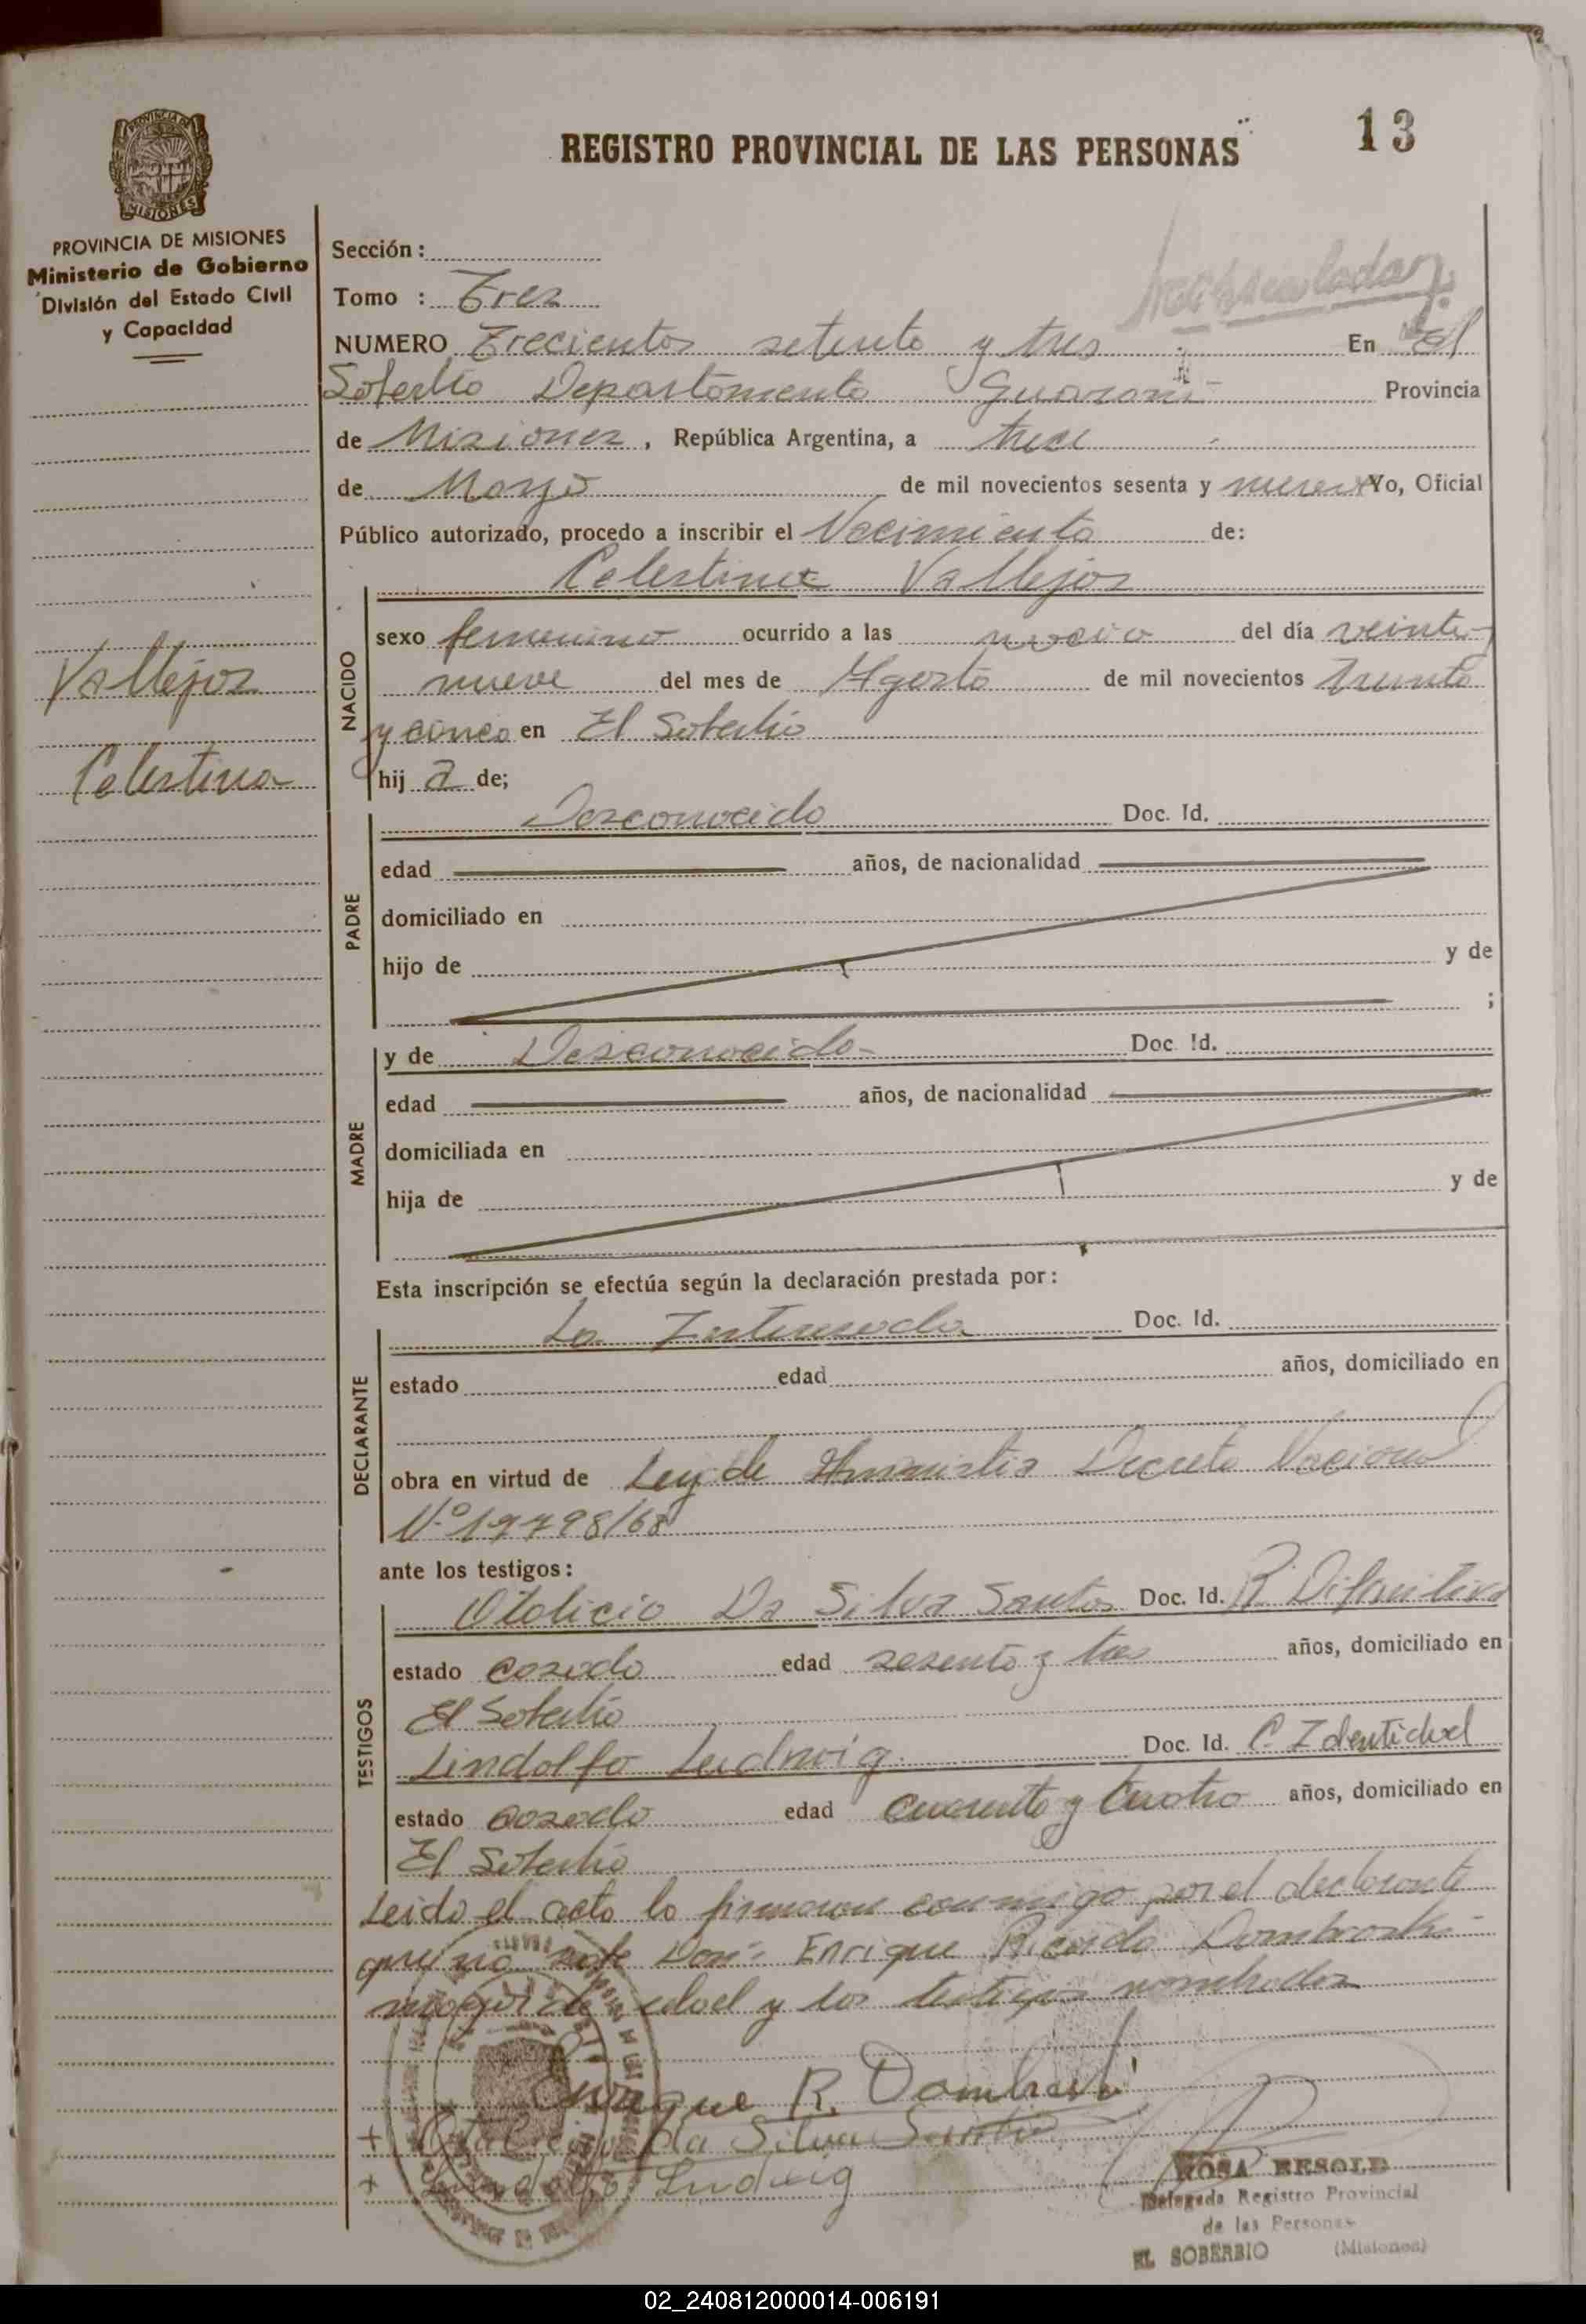 13
REGISTRO PROVINCIAL DE LAS PERSONAS
PROVINCIA DE MISIONES
Ministerio de Gobierno
División del Estado Civil
y Capacidad
Sección :
Tomo : Tres
NUMERO Trecientos setenta y tres En El
Soberbio Departamento Guarani Provincia
de Misiones, República Argentina, a trece
de Mayo de mil novecientos sesenta y nueve Yo, Oficial
Público autorizado, procedo a inscribir el Nacimiento de:
Celestina Vallejos
Vallejos
Celestina
NACIDO
sexo femenino ocurrido a las del día veinti
nueve del mes de Agosto de mil novecientos treinta
y cinco en El Soberbio
hij a de;
PADRE
Desconocido Doc. Id.
edad años, de nacionalidad
domiciliado en
hijo de y de
;
MADRE
y de Desconocido Doc. Id.
edad años, de nacionalidad
domiciliada en
hija de y de
Esta inscripción se efectúa según la declaración prestada por:
DECLARANTE
La Interesada Doc. Id.
estado edad años, domiciliado en
obra en virtud de Ley de Amnistia Decreto Nacional
Nº 17798/68
ante los testigos:
TESTIGOS
Otalicio Da Silva Santos Doc. Id.
estado casado edad sesenta y tres años, domiciliado en
El Soberbio
Lindolfo Ludwig Doc. Id. C. Identidad
estado casado edad cuarenta y cuatro años, domiciliado en
El Soberbio
Leido el acta la firmaron conmigo por el declarante
que no sabe Don: Enrique Ricardo Dombroski
mayor de edad y los testigos nombrados
Enrique R. Dombroski
+ Otalicio da Silva Santos
+ Lindolfo Ludwig
ROSA BESOLD
Delegada Registro Provincial
de las Personas
EL SOBERBIO (Misiones)
02_240812000014-006191